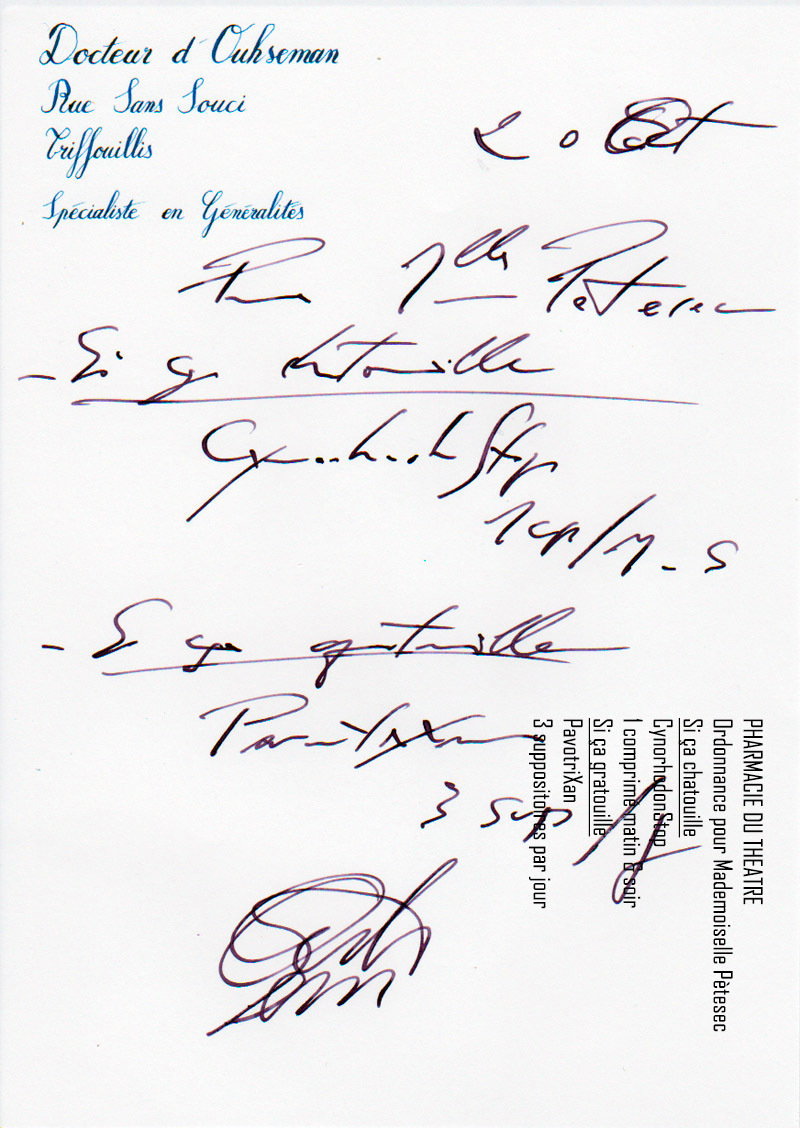 Docteur d'Ouhseman
Rue Sans Souci
Triffouillis
Spécialiste en Généralités
20 Oct
Pour Mlle Pètesec
- Si ça chatouille
CynorhodonStop
1 cp/M-S
- Si ça gratouille
PavotriXan
3 sup/j
PHARMACIE DU THEATRE
Ordonnance pour Mademoiselle Pètesec
Si ça chatouille
CynorhodonStop
1 comprimé matin & soir
Si ça gratouille
PavotriXan
3 suppositoires par jour